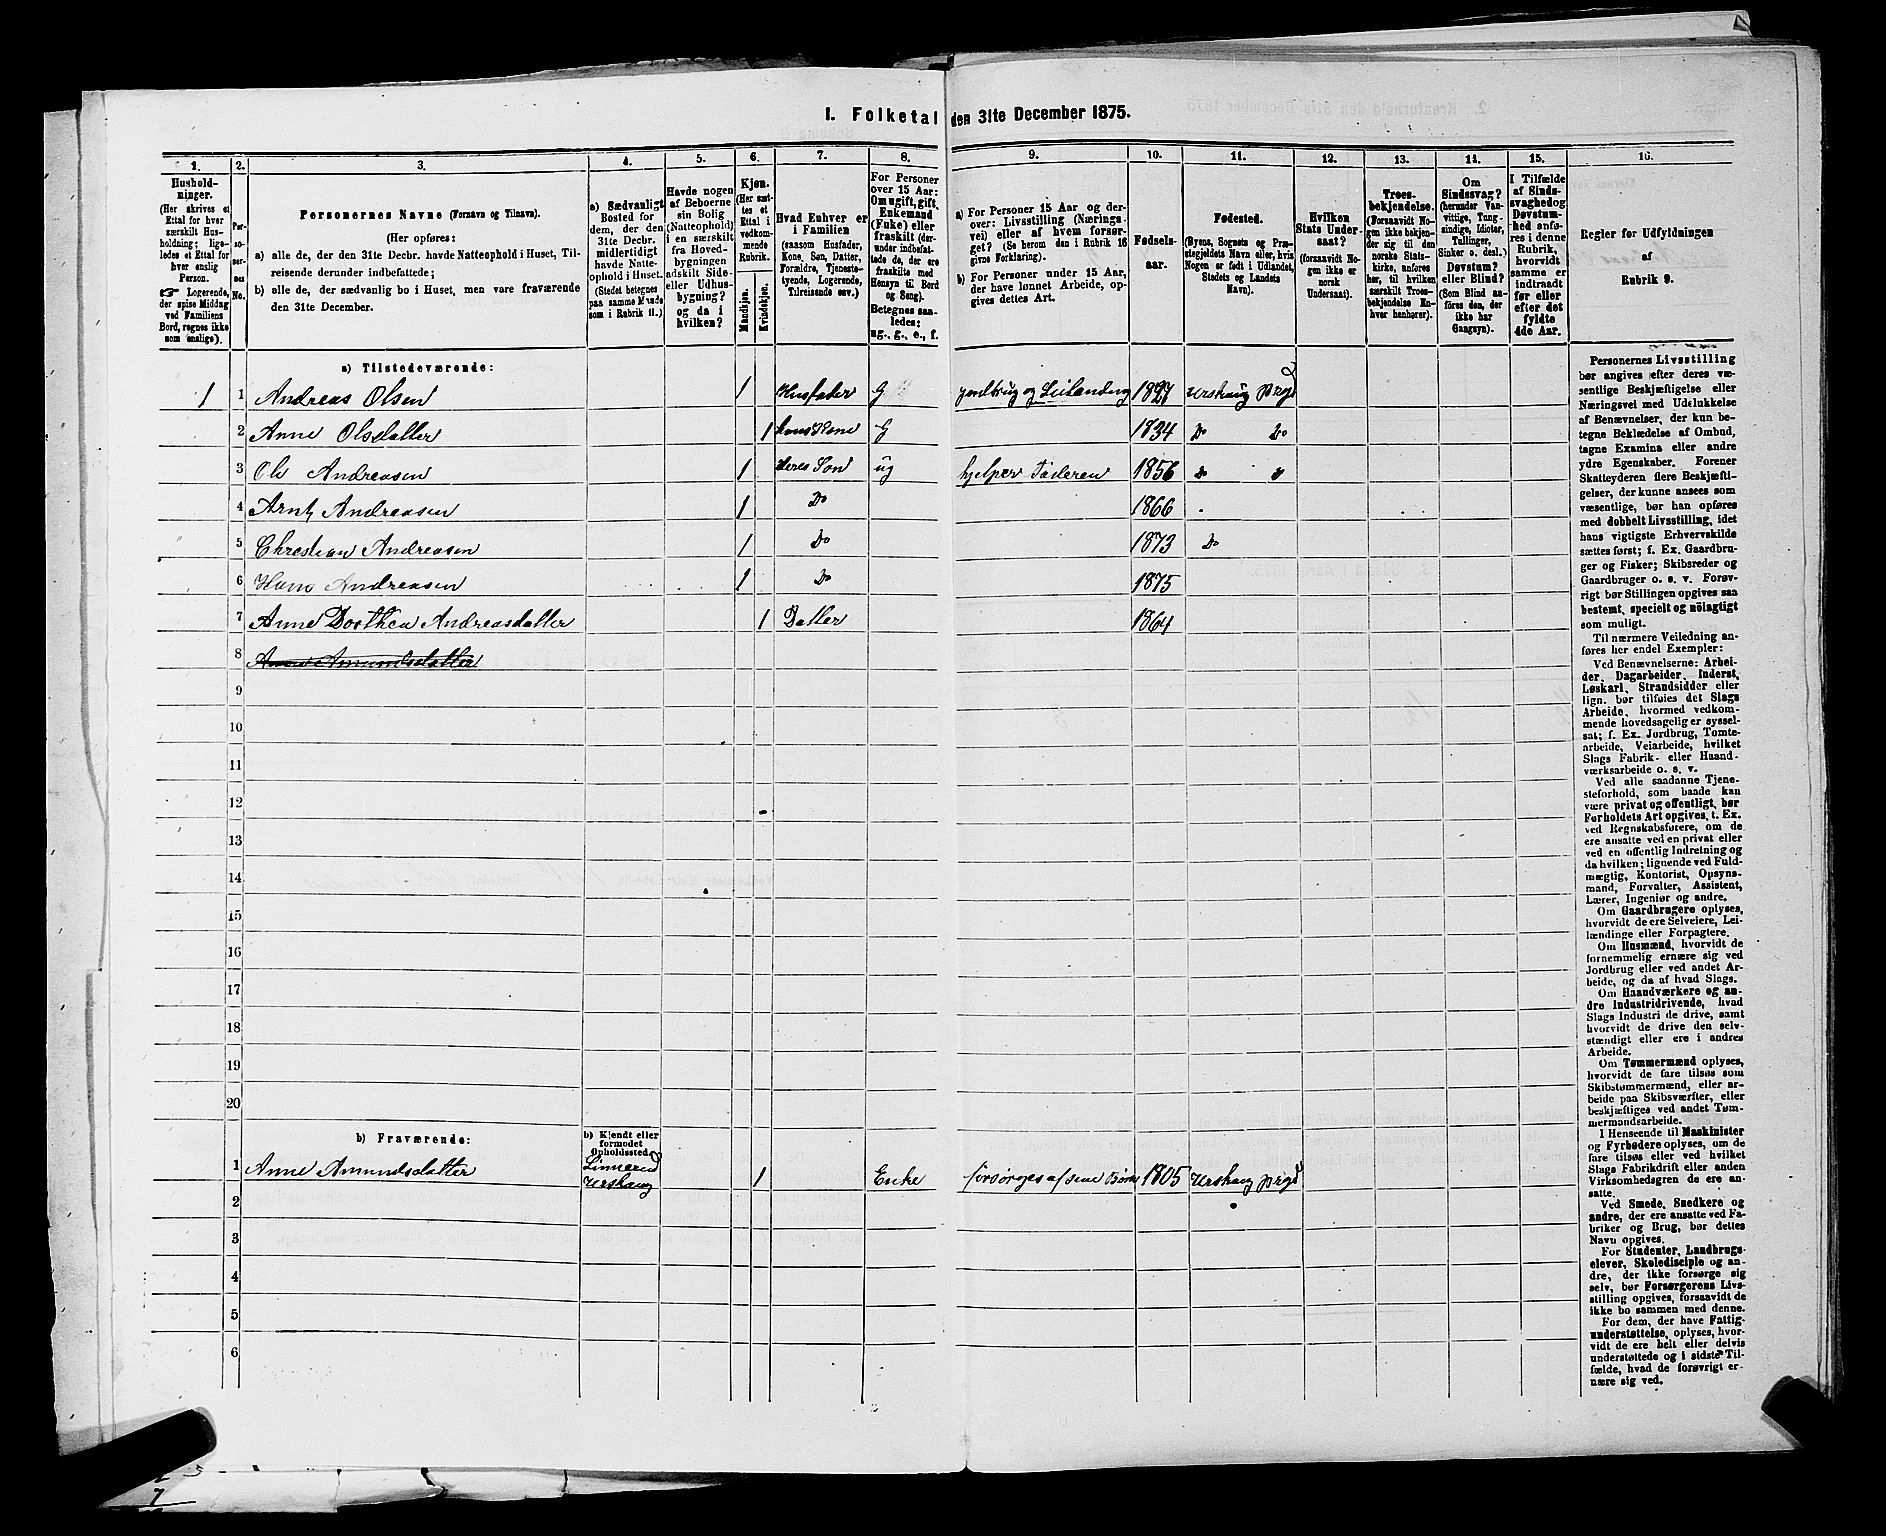 I. Folketal den 31te December 1875.
1. 2. 3. 4. 5. 6. 7. 8. 9. 10. 11. 12. 13. 14. 15. 16.
Husholdninger.
(Her skrives et Ettal for hver særskilt Husholdning; ligeledes et Ettal for hver enslig Person.
☞ Logerende, der spise Middag ved Familiens Bord, regnes ikke som enslige).
Personernes No.
Personernes Navne (Fornavn og Tilnavn).
(Her opføres:
a) alle de, der den 31te Decbr. havde Natteophold i Huset, Tilreisende derunder indbefattede;
b) alle de, der sædvanlig bo i Huset, men vare fraværende den 31te December.
a) Sædvanligt Bosted for dem, der den 31te Decbr. midlertidigt havde Natteophold i Huset. (Stedet betegnes paa samme Maade som i Rubrik 11.)
Havde nogen af Beboerne sin Bolig (Natteophold) i en særskilt fra Hovedbygningen adskilt Side- eller Udhusbygning? og da i hvilken?
Kjøn. (Her sættes et Ettal i vedkommende Rubrik.
Mandkjøn. Kvindekjøn.
Hvad Enhver er i Familien (saasom Husfader, Kone, Søn, Datter, Forældre, Tjenestetyende, Logerende, Tilreisende osv.)
For Personer over 15 Aar: Om ugift, gift, Enkemand (Enke) eller fraskilt (derunder indbefattede de, der ere fraskilte med Hensyn til Bord og Seng). Betegnes saaledes: ug., g., e., f.
a) For Personer 15 Aar og derover: Livsstilling (Næringsvei) eller af hvem forsørget? (Se herom den i Rubrik 16 givne Forklaring).
b) For Personer under 15 Aar, der have lønnet Arbeide, opgives dettes Art.
Fødselsaar.
Fødested. (Byens, Sognets og Præstegjeldets Navn eller, hvis Nogen er født i Udlandet, Stedets og Landets Navn).
Hvilken Stats Undersaat? (forsaavidt Nogen ikke er norsk Undersaat).
Troesbekjendelse. (Forsaavidt Nogen ikke bekjender sig til den norske Statskirke, anføres her, til hvilken særskilt Troesbekjendelse Enhver henhører).
Om Sindssvag? (herunder Vanvittige, Tungsindige, Idioter, Tullinger, Sinker o. desl.) Døvstum? eller Blind? (Som Blind anføres den, der ikke har Gangsyn).
I Tilfælde af Sindssvaghed og Døvstumhed anføres i denne Rubrik, hvorvidt samme er indtraadt før eller efter det fyldte 4de Aar.
Regler for Udfyldningen af Rubrik 9.
a) Tilstedeværende:
1 1 Andreas Olsen 1 Husfader G jordbrug og Leilænding 1827 Urskoug prgd
2 Anne Olsdatter 1 hans Kone G 1834 Do Do
3 Ole Andreasen 1 deres Søn ug hjelper Faderen 1856 Do Do
4 Arnt Andreasen 1 Do 1866
5 Christian Andreasen 1 Do 1873 Do
6 Hans Andreasen 1 Do 1875
7 Anne Dorthea Andreasdatter 1 Datter 1864
8 Anne Amundsdatter
9
10
11
12
13
14
15
16
17
18
19
20
b) Fraværende:
b) Kjendt eller formodet Opholdssted.
1 Anne Amundsdatter Linnerud Urskoug 1 Enke forsørges af sine Børn 1805 Urskoug prgd
2
3
4
5
6
Personernes Livsstilling bør angives efter deres væsentlige Beskjæftigelse eller Næringsvei med Udelukkelse af Benævnelser, der kun betegne Beklædelse af Ombud, tagne Examina eller andre ydre Egenskaber. Forener Skatteyderen flere Beskjæftigelser, der kunne ansees som væsentlige, bør han opføres med dobbelt Livsstilling, idet hans vigtigste Erhvervskilde sættes først; f. Ex. Gaardbruger og Fisker; Skibsreder og Gaardbruger o. s. v. Forøvrigt bør Stillingen opgives saa bestemt, specielt og nøiagtigt som muligt.
Til nærmere Veiledning anføres her endel Exempler:
Ved Benævnelserne: Arbeider, Dagarbeider, Inderst, Løskarl, Strandsidder eller lign. bør tilføies det Slags Arbeide, hvormed vedkommende hovedsagelig er sysselsat; f. Ex. Jordbrug, Tomtearbeide, Veiarbeide, hvilket Slags Fabrik- eller Haandværksarbeide o. s. v.
Ved alle saadanne Tjenesteforhold, som baade kan være privat og offentligt, bør Forholdets Art opgives, t. Ex. ved Regnskabsførere, om de ere ansatte ved en privat eller ved en offentlig Indretning og da hvilken; lignende ved Fuldmægtig, Kontorist, Opsynsmand, Forvalter, Assistent, Lærer, Ingeniør og andre.
Om Gaardbrugere oplyses, hvorvidt de ere Selveiere, Leilændinge eller Forpagtere.
Om Husmænd, hvorvidt de fornemmelig ernære sig ved Jordbrug eller ved andet Arbeide, og da af hvad Slags.
Om Haandværkere og andre Industridrivende, hvad Slags Industri de drive, samt hvorvidt de drive den selvstændigt eller ere i andres Arbeide.
Om Tømmermænd oplyses, hvorvidt de fare tilsøs som Skibstømmermænd, eller arbeide paa Skibsværfter, eller beskjæftiges ved andet Tømmermandsarbeide.
I Henseende til Maskinister og Fyrbødere oplyses, om de fare tilsøs eller ved hvilket Slags Fabrikdrift eller anden Virksomhedsgren de ere ansatte.
Ved Smede, Snedkere og andre, der ere ansatte ved Fabriker og Brug, bør dettes Navn opgives.
For Studenter, Landbrugselever, Skoledisciple og andre, der ikke forsørge sig selv, bør Forsørgerens Livsstilling opgives, forsaavidt de ikke bo sammen med denne.
For dem, der have Fattigunderstøttelse, oplyses, hvorvidt de ere helt eller delvis understøttede og i sidste Tilfælde, hvad de forøvrigt ernære sig ved.